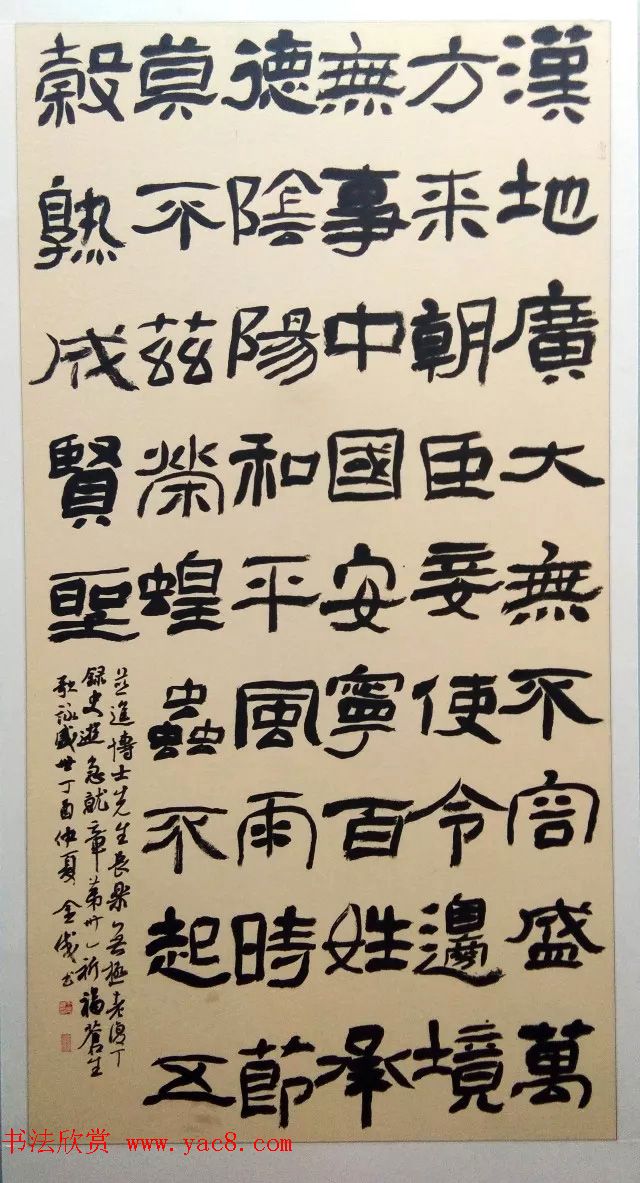 漢地廣大無不容盛萬
方来朝臣妾使令邊境
無事中國安寧百姓承
德陰陽和平風雨時節
莫不茲榮蝗蟲不起五
穀熟成賢聖
並進博士先生長樂無極老復丁
録史游急就章第卅一祈福蒼生
歌詠盛世丁酉仲夏金
书法欣赏 www.yac8.com